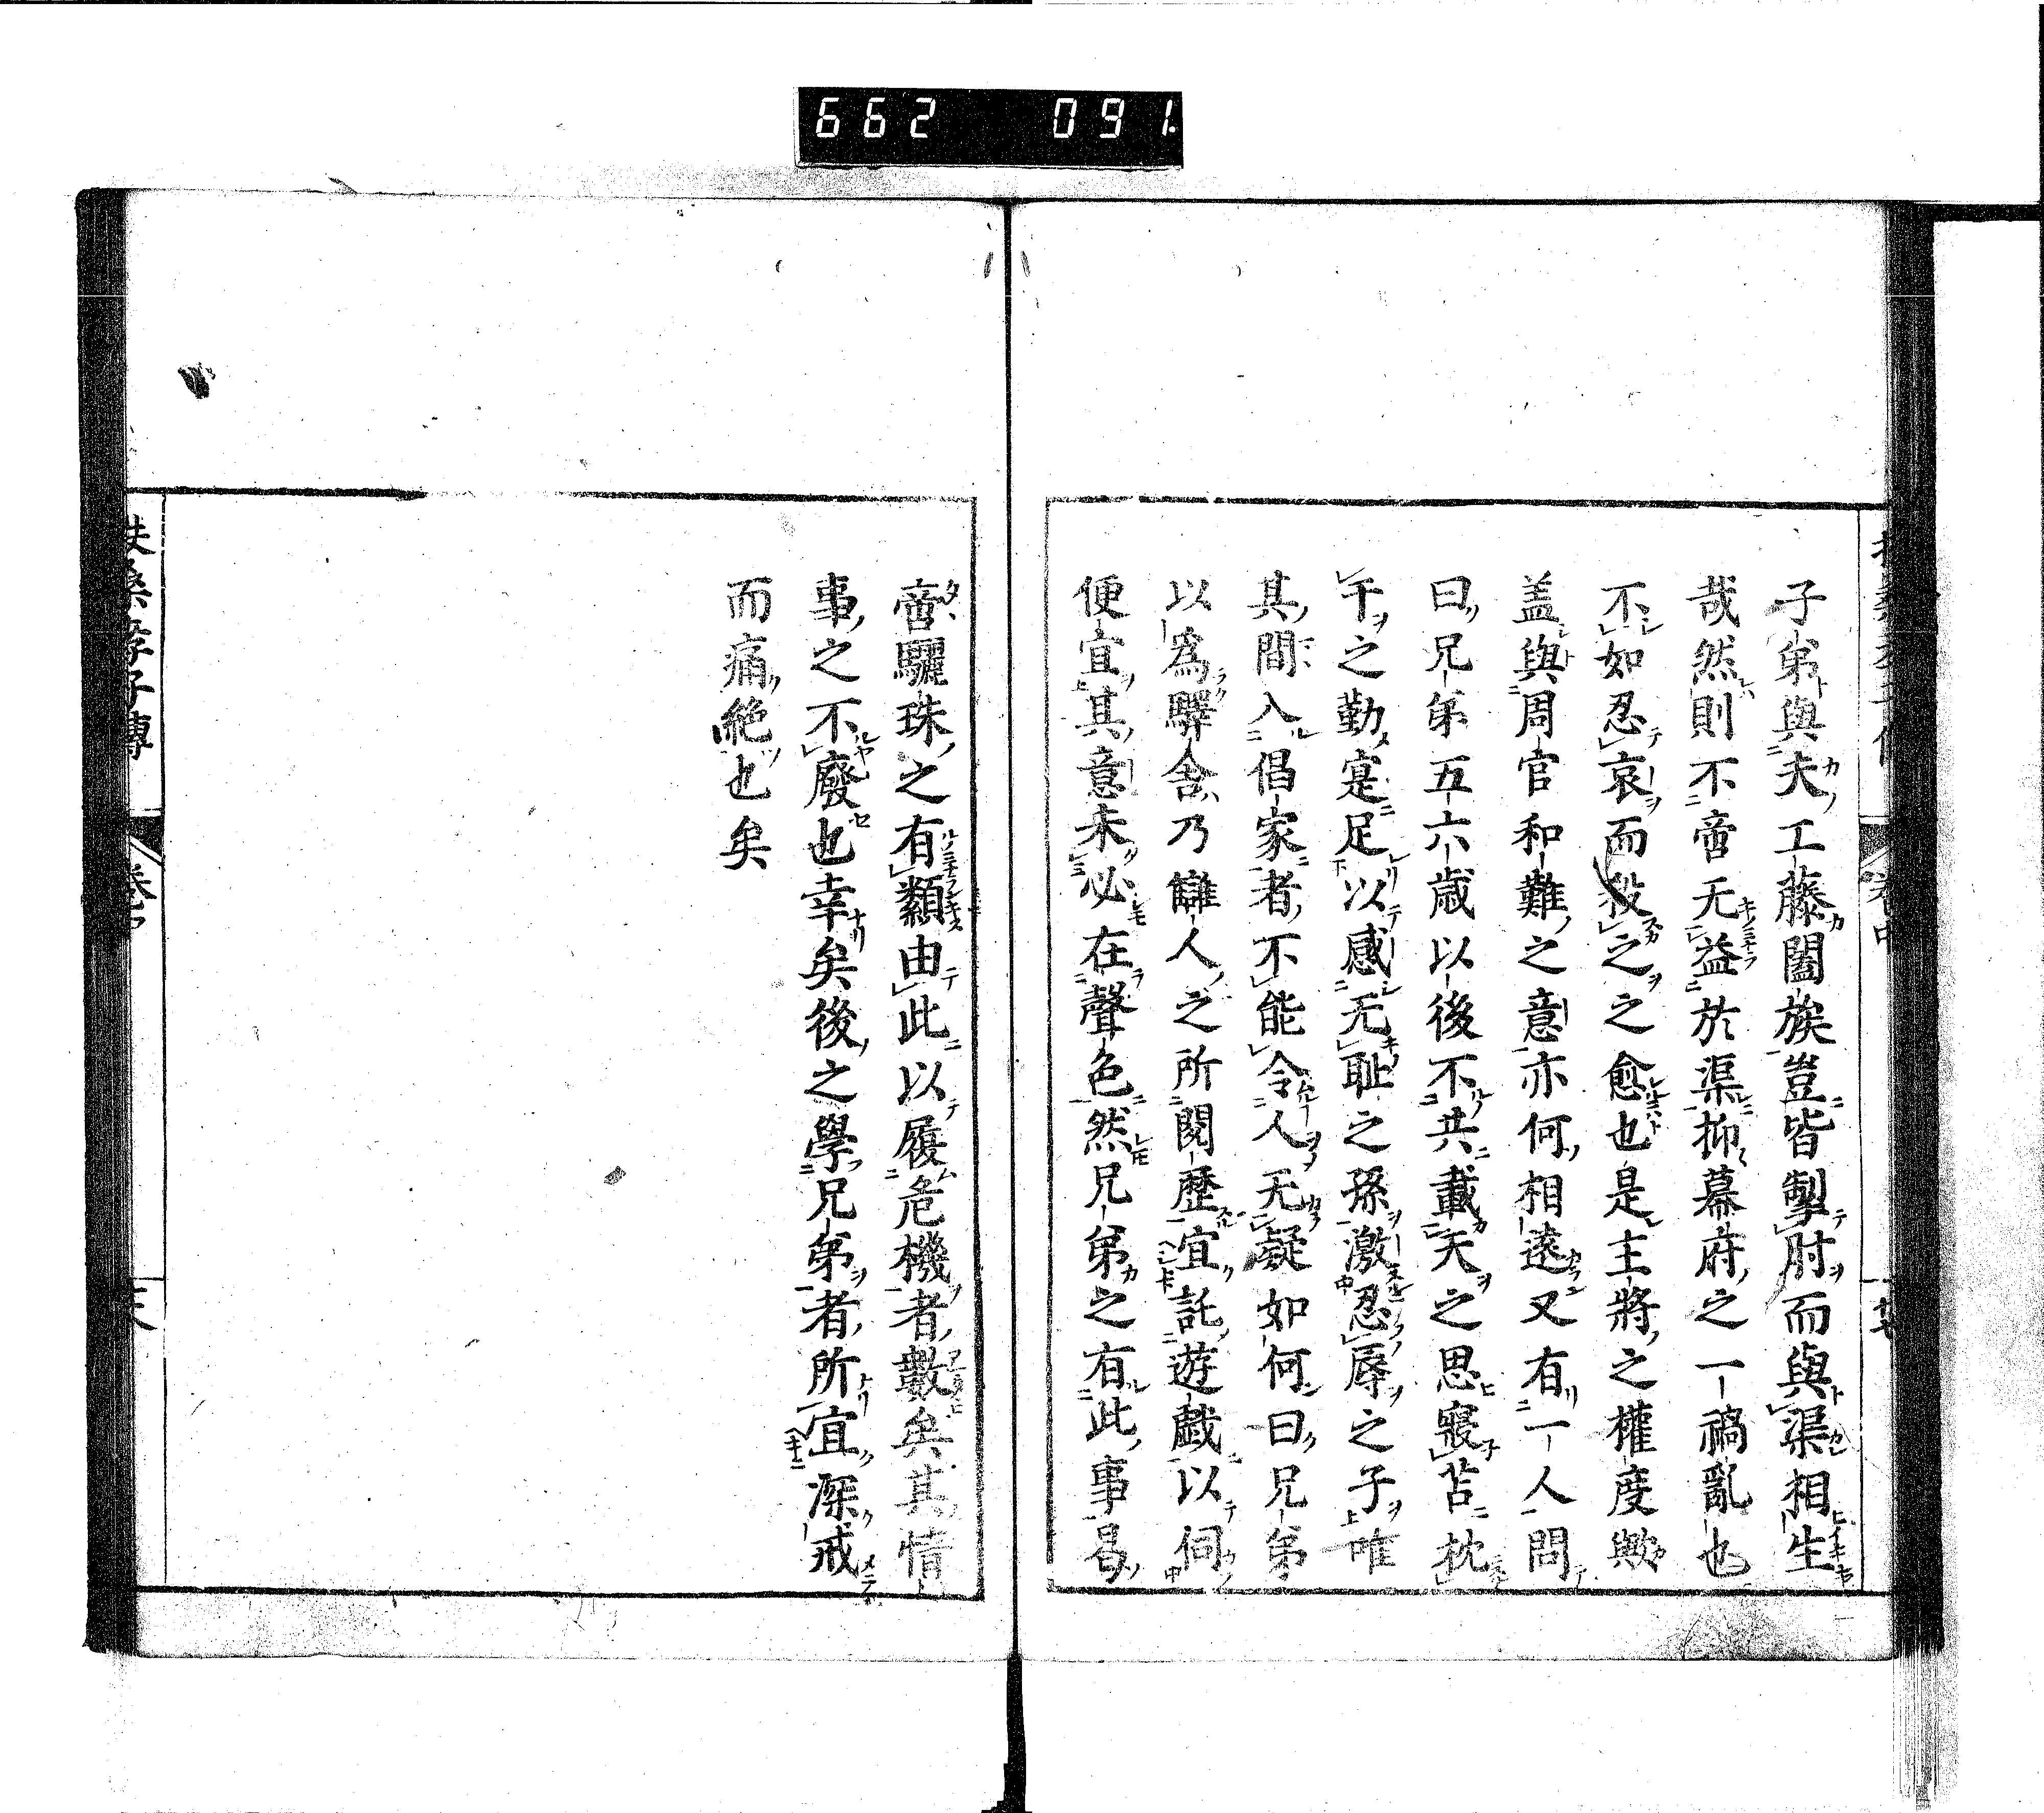 662 091
子弟與夫工藤闔族豈皆掣肘而與渠相生
哉然則不啻无益於渠抑幕府之一禍亂也
不如忍哀而殺之之愈也是主將之權度歟
盖與周官和難之意亦何相遠又有一人問
曰兄弟五六歲以後不共戴天之思寢苫枕
干之勤寔足以感无恥之孫激忍辱之子唯
其間入倡家者不能令人无疑如何曰兄弟
以為驛舍乃讎人之所閱歷宜託遊戲以伺
便宜其意未必在聲色然兄弟之有此事曷
啻驪珠之有纇由此以履危機者數矣其情
事之不廢也幸矣後之學兄弟者所宜深戒
而痛絕也矣
扶桑孝子傳